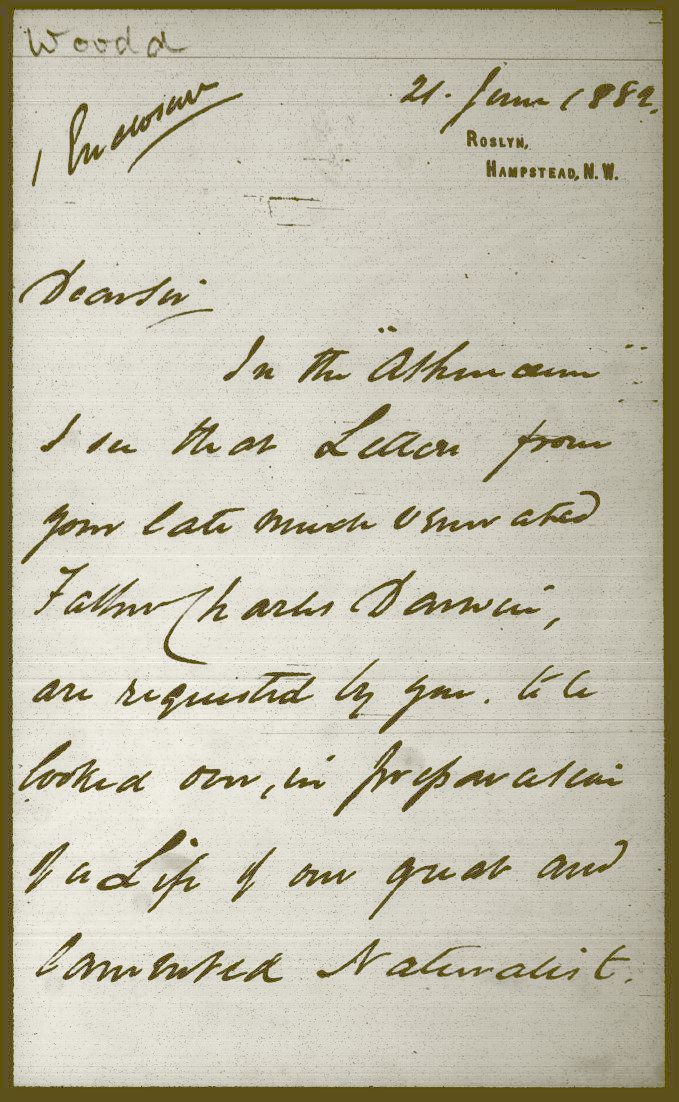 Woodd
21. June 1882.
1 Enclosure
ROSLYN,
HAMPSTEAD, N.W.
Dear Sir
In the "Athenaeum"
I see that Letters from
your late much venerated
Father Charles Darwin,
are requested by you. to be
looked over, in preparation
of a Life of our great and
lamented Naturalist.